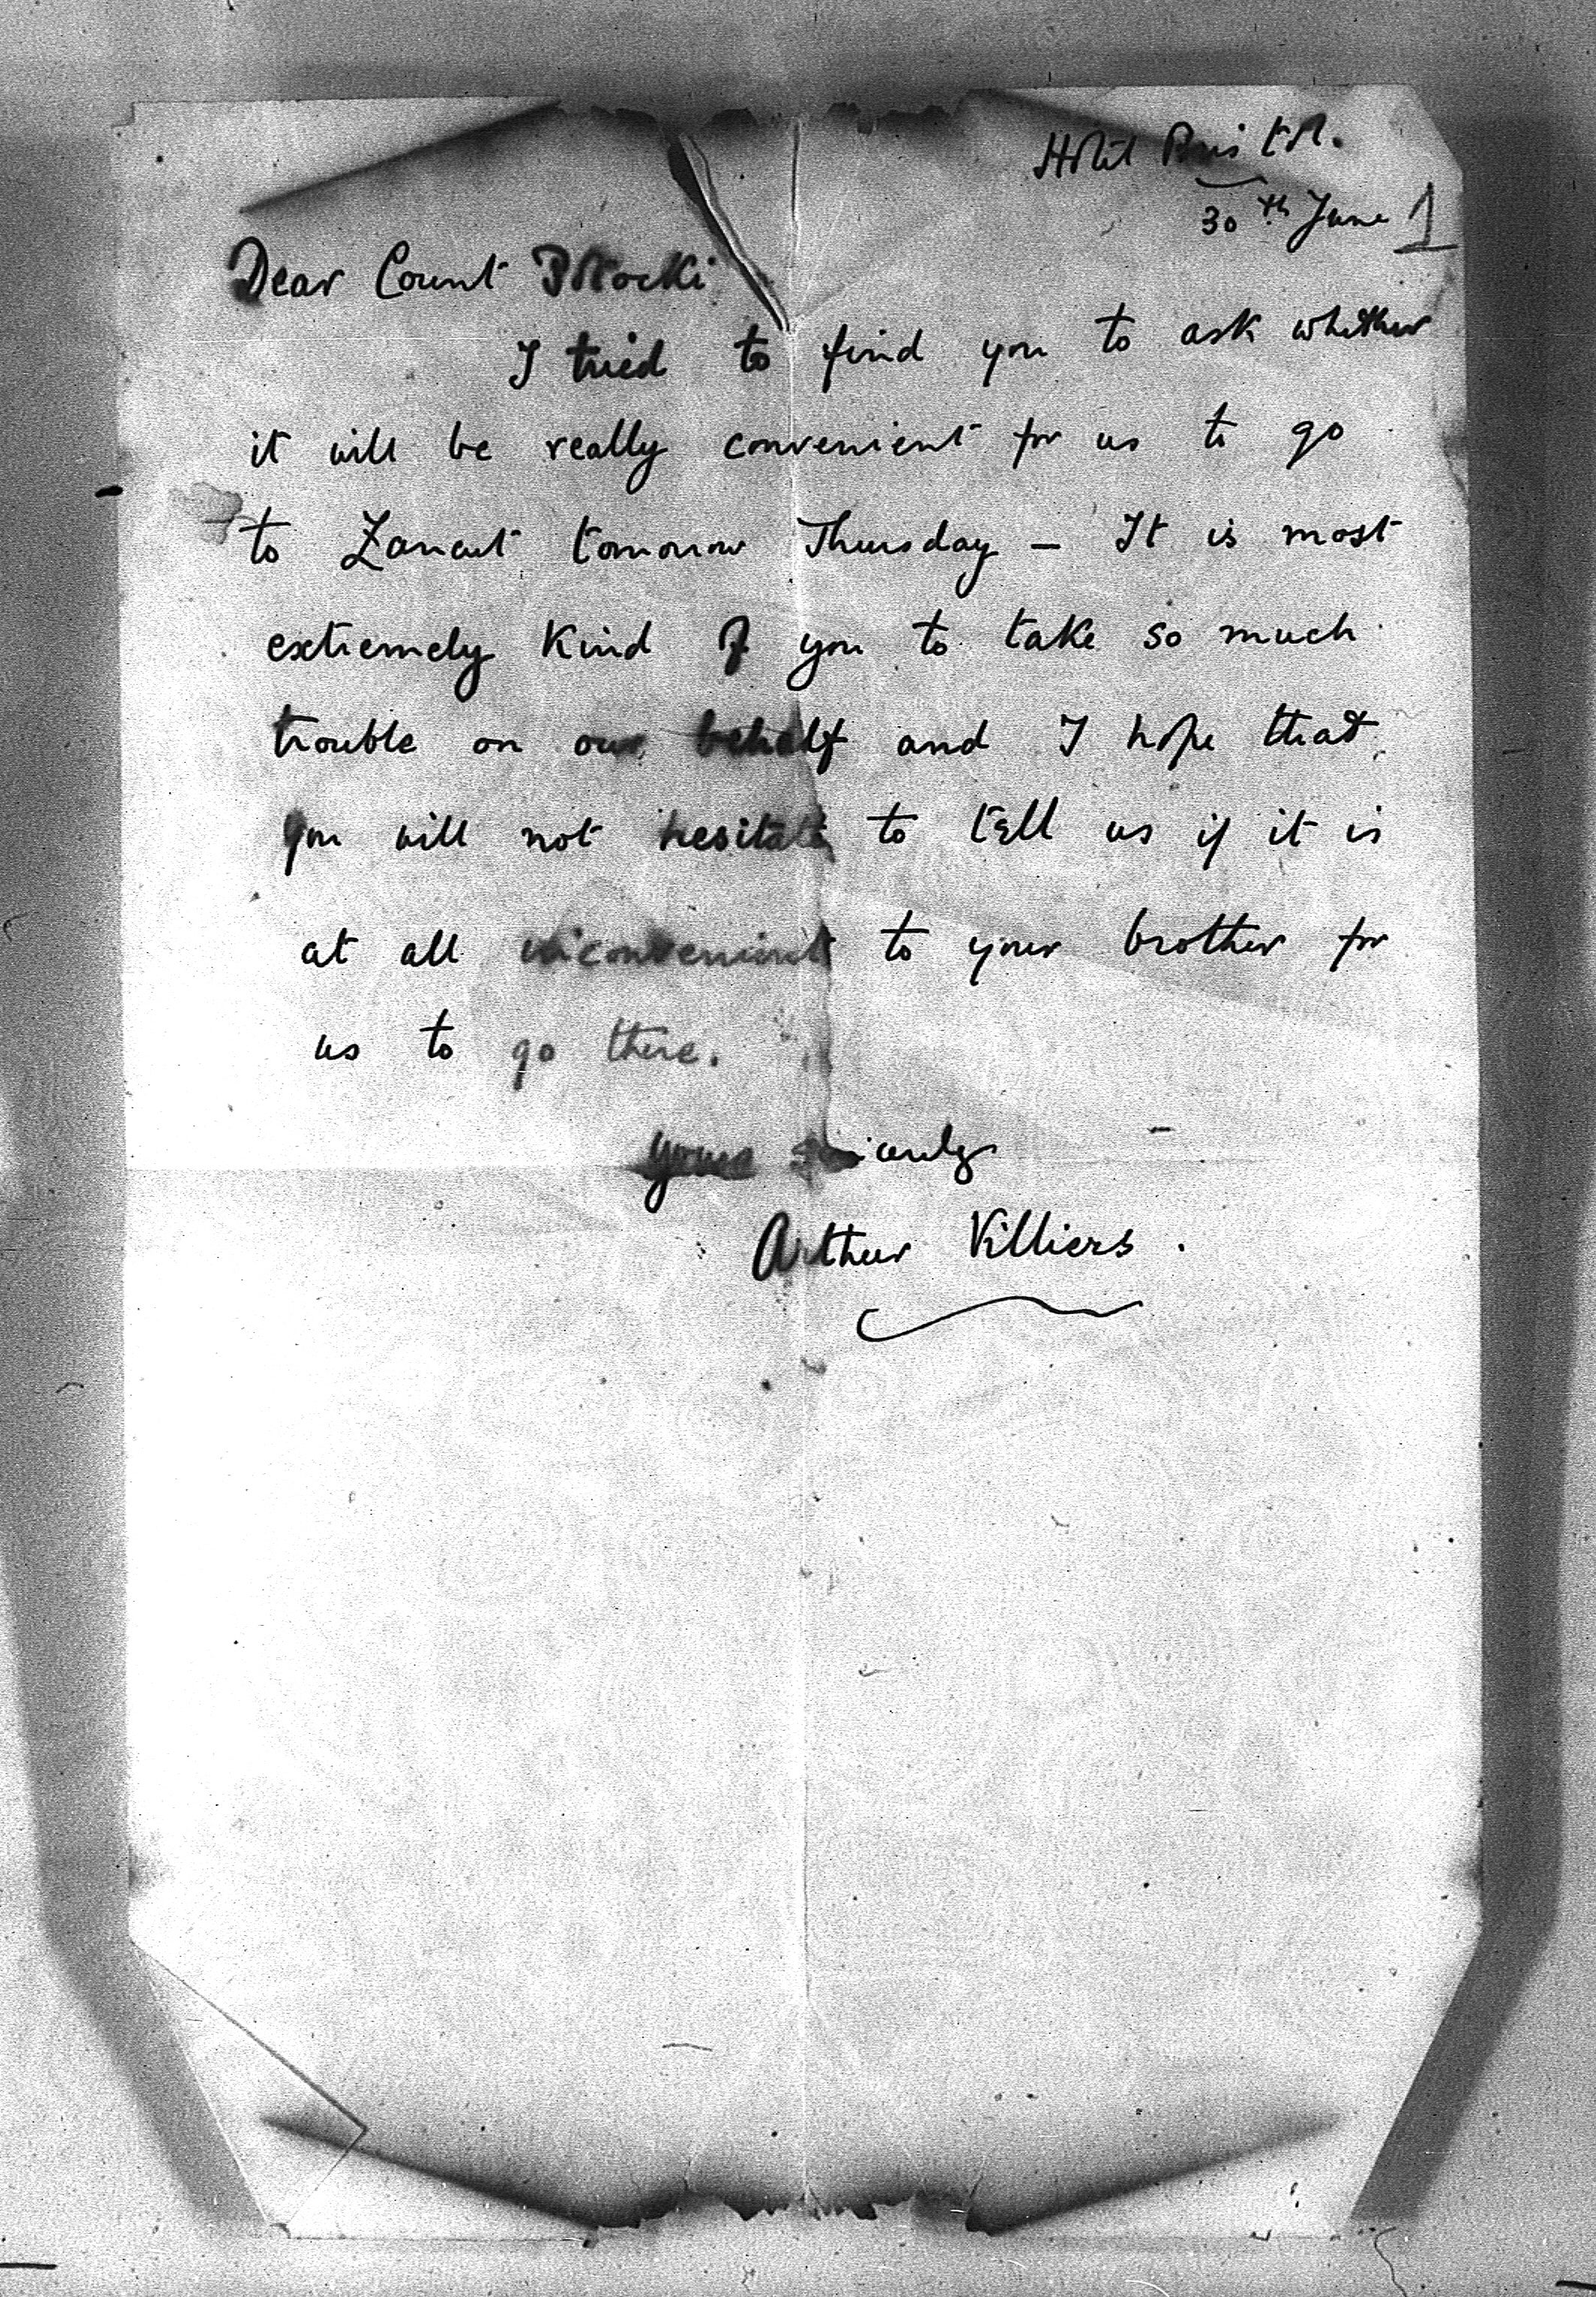 Hotel Bristol.
30th June 1
Dear Count Potocki
I tried to find you to ask whether
it will be really convenient for us to go
to Lancut tomorrow Thursday – It is most
extremely kind of you to take so much
trouble on our behalf and I hope that
you will not hesitate to tell us if it is
at all inconvenient to your brother for
us to go there.
Yours sincerely
Arthur Villiers.